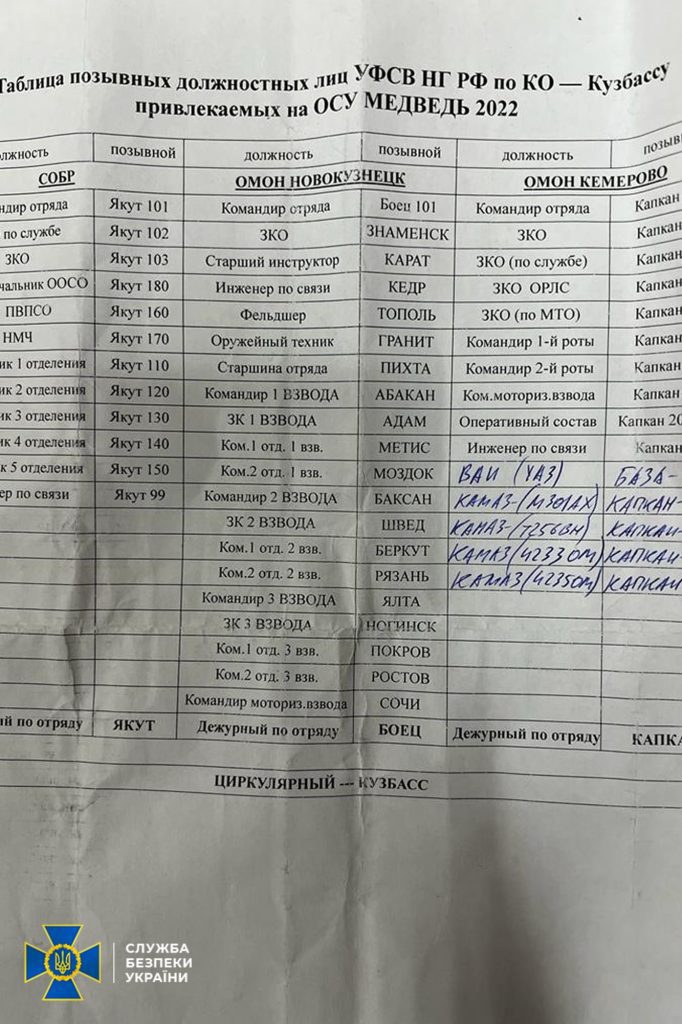 Таблица позывных должностных лиц УФСВ НГ РФ по КО — Кузбассу
привлекаемых на ОСУ МЕДВЕДЬ 2022
лжность позывной должность позывной должность позывн
СОБР ОМОН НОВОКУЗНЕЦК ОМОН КЕМЕРОВО
ндир отряда Якут 101 Командир отряда Боец 101 Командир отряда Капкан
по службе Якут 102 ЗКО ЗНАМЕНСК ЗКО Капкан
ЗКО Якут 103 Старший инструктор КАРАТ ЗКО (по службе) Капкан
чальник ООСО Якут 180 Инженер по связи КЕДР ЗКО ОРЛС Капкан
ПВПСО Якут 160 Фельдшер ТОПОЛЬ ЗКО (по МТО) Капкан
НМЧ Якут 170 Оружейный техник ГРАНИТ Командир 1-й роты Капкан
ик 1 отделения Якут 110 Старшина отряда ПИХТА Командир 2-й роты Капкан
ик 2 отделения Якут 120 Командир 1 ВЗВОДА АБАКАН Ком.моториз.взвода Капкан
ик 3 отделения Якут 130 ЗК 1 ВЗВОДА АДАМ Оперативный состав Капкан 20
ик 4 отделения Якут 140 Ком.1 отд. 1 взв. МЕТИС Инженер по связи Капкан
к 5 отделения Якут 150 Ком.2 отд. 1 взв. МОЗДОК ВАИ (УАЗ) БАЗА-
ер по связи Якут 99 Командир 2 ВЗВОДА БАКСАН КАМАЗ- КАПКАН-
ЗК 2 ВЗВОДА ШВЕД КАМАЗ- КАПКАН-
Ком.1 отд. 2 взв. БЕРКУТ КАМАЗ (4233ОМ) КАПКАН-
Ком.2 отд. 2 взв. РЯЗАНЬ КАМАЗ (4235ОМ) КАПКАН
Командир 3 ВЗВОДА ЯЛТА
ЗК 3 ВЗВОДА НОГИНСК
Ком.1 отд. 3 взв. ПОКРОВ
Ком.2 отд. 3 взв. РОСТОВ
Командир моториз.взвода СОЧИ
ый по отряду ЯКУТ Дежурный по отряду БОЕЦ Дежурный по отряду КАПКА
ЦИРКУЛЯРНЫЙ --- КУЗБАСС
СЛУЖБА
БЕЗПЕКИ
УКРАЇНИ